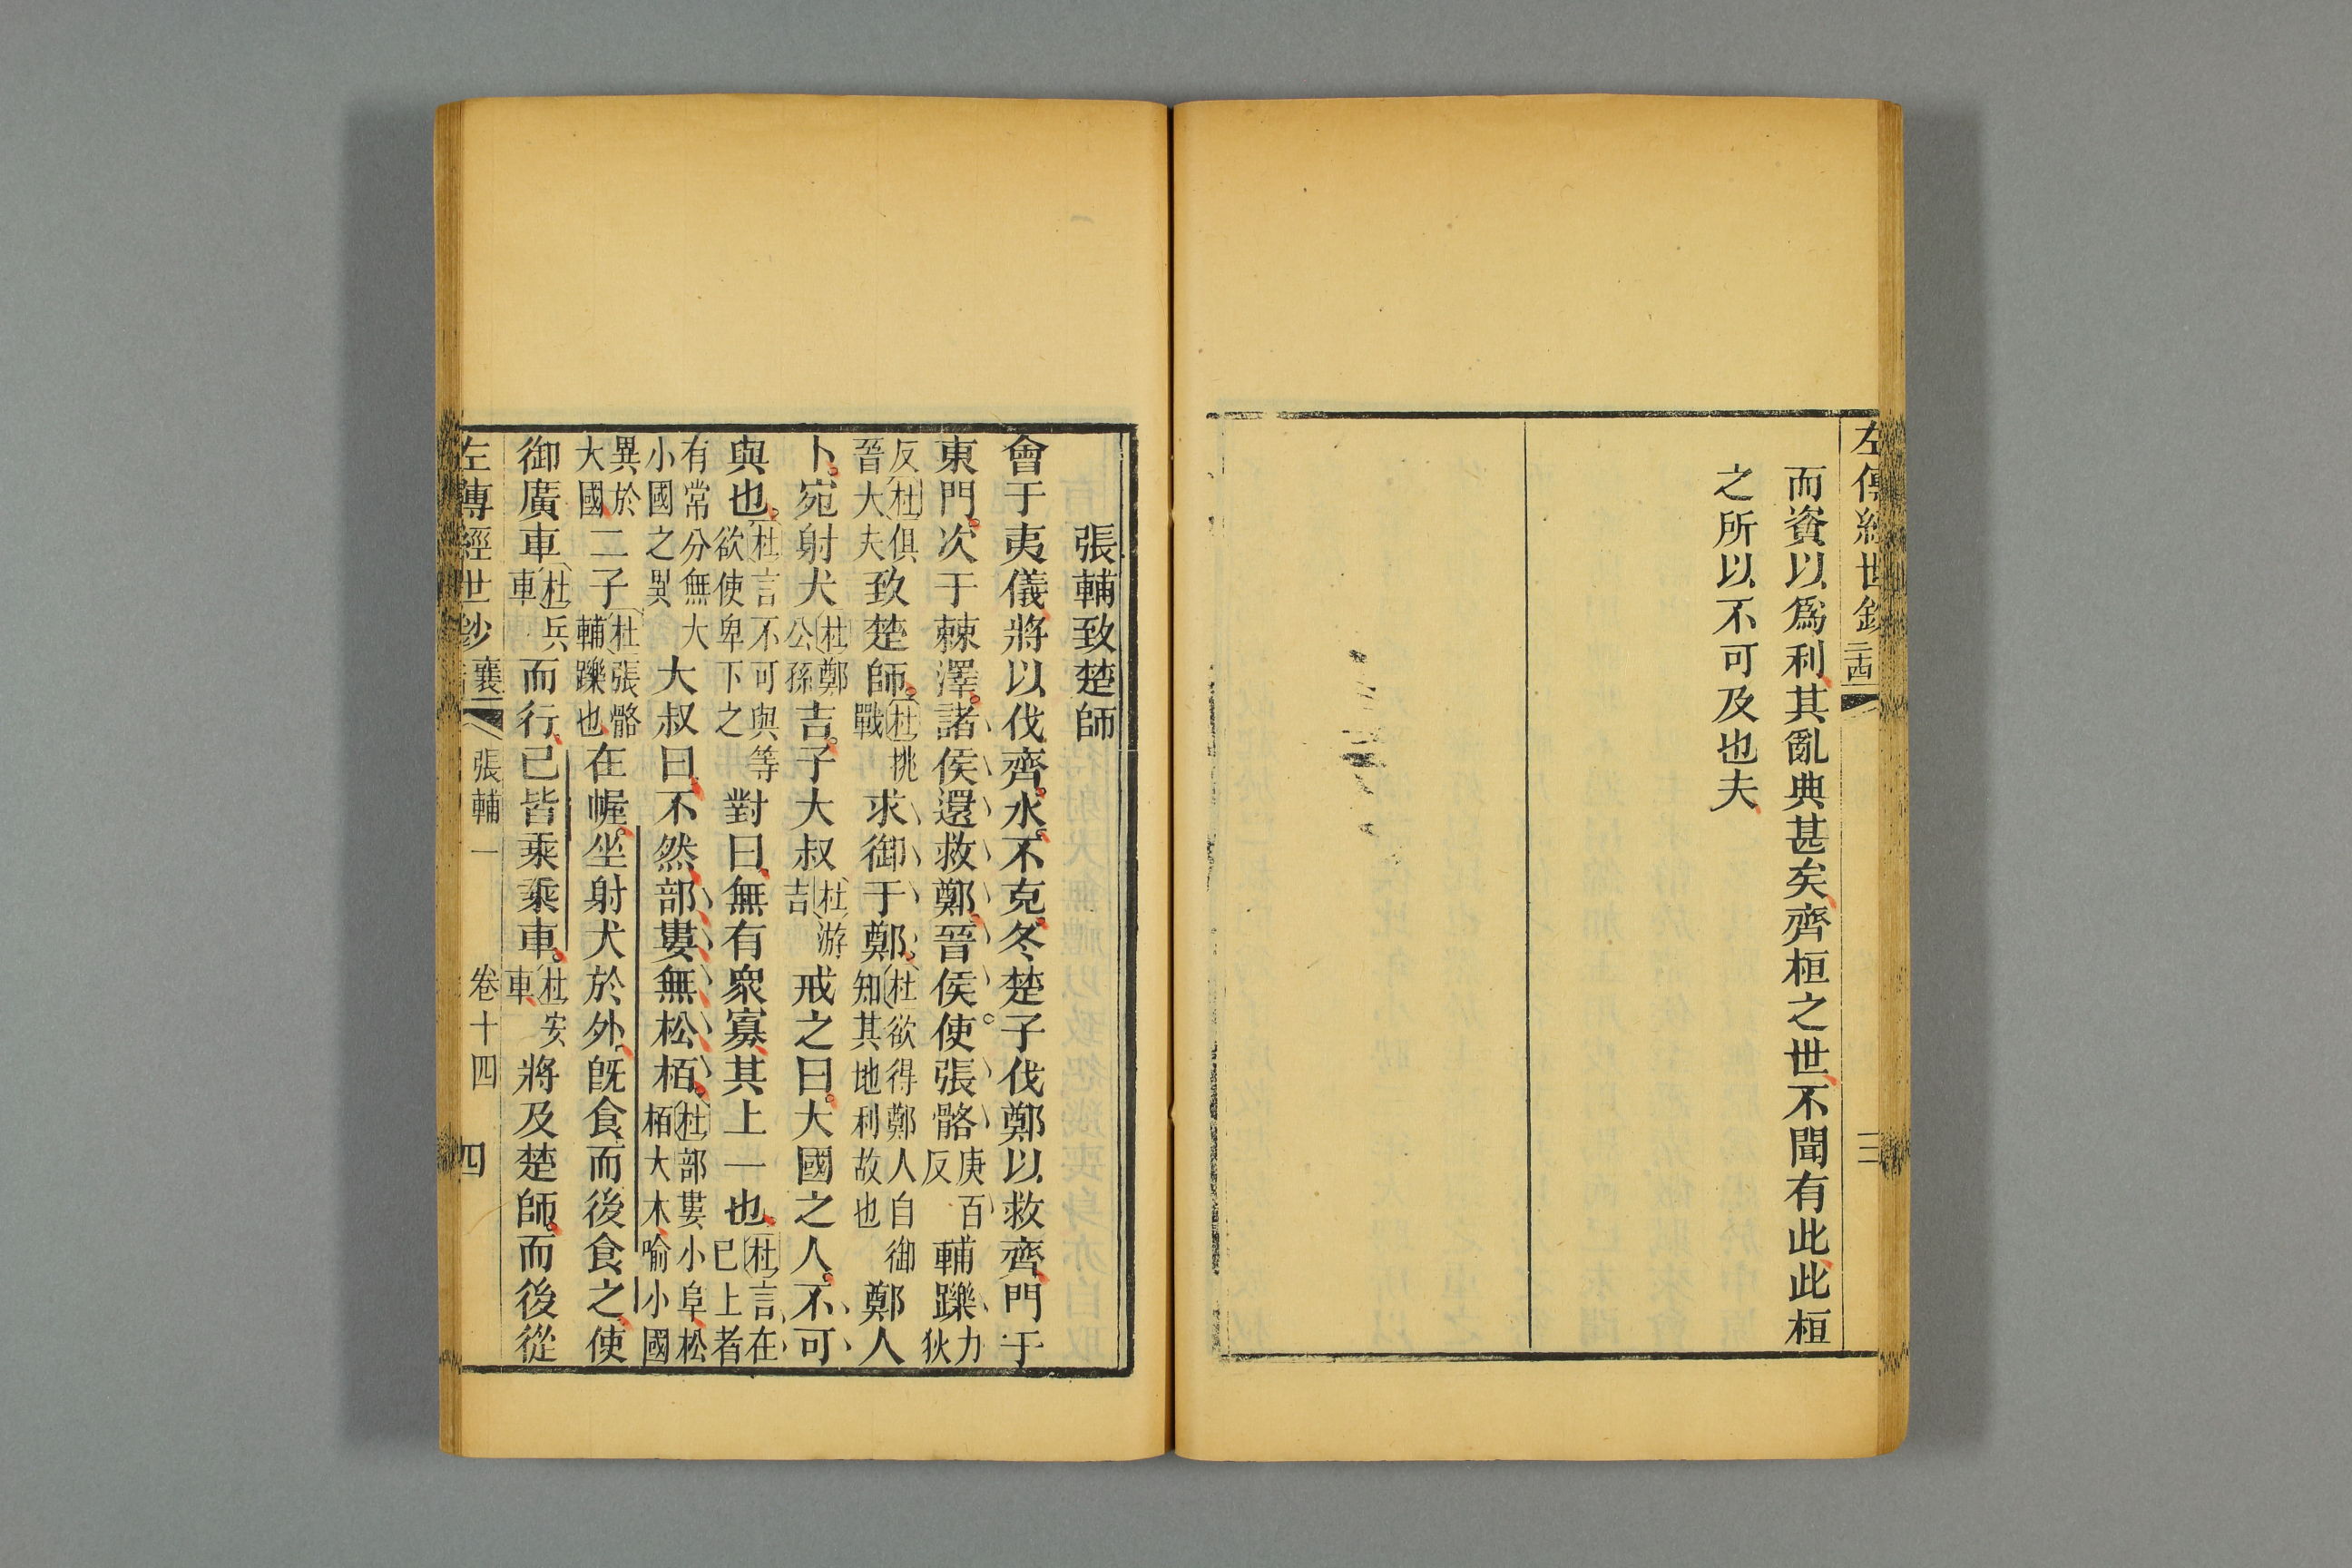 左傳經世鈔
三
而資以爲利其亂典甚矣齊桓之世不聞有此此桓
之所以不可及也夫
張輔致楚師
會于夷儀將以伐齊水不克冬楚子伐鄭以救齊門于
東門次于棘澤諸侯還救鄭晉侯使張骼庚百反輔躒力狄
反杜俱晉大夫致楚師杜挑戰求御于鄭杜欲得鄭人自御知其地利故也鄭人
卜宛射犬杜鄭公孫吉子大叔杜游吉戒之曰大國之人不可
與也杜言不可與等欲使卑下之對曰無有衆寡其上一也杜言在己上者
有常分無大小國之異大叔曰不然部婁無松栢杜部婁小阜松栢大木喻小國
異於大國二子杜張骼輔躒也在幄坐射犬於外旣食而後食之使
御廣車杜兵車而行已皆乘乘車杜安車將及楚師而後從
左傳經世鈔 襄 張輔一 卷十四 四